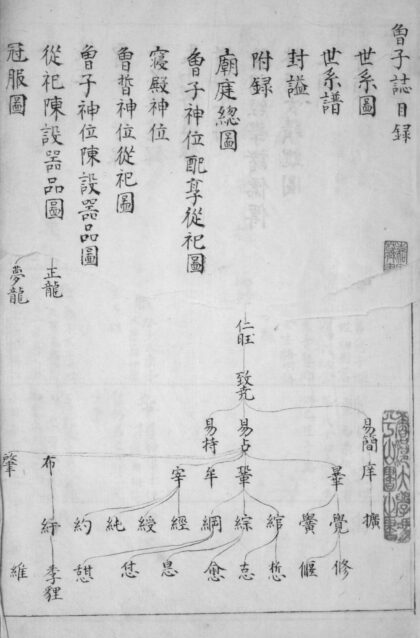 曾子誌目録
世系圖
世系譜
封謚
附録
廟庭總圖
曾子神位配享從祀圖
寝殿神位
曾晳神位從祀圖
曾子神位陳設器品圖
從祀陳設器品圖
冠服圖
正龍
夢龍
仁旺
致尭
易簡 易占 易持
庠 鞏 牟 宰 布 肇
擴 覺 黌 綰 綜 綱 經 綬 純 約 紆 維
修 偃 悊 愈 息